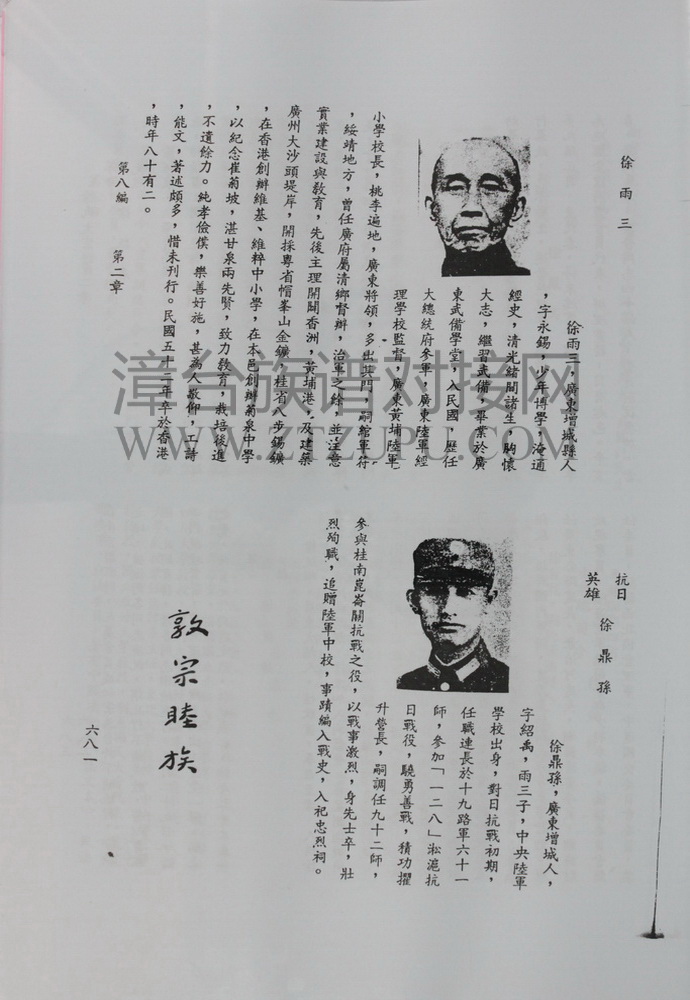 徐雨三
徐雨三，廣東增城縣人
，字永錫，少年博學，淹通
經史，清光緒間諸生，胸懷
大志，繼習武備，畢業於廣
東武備學堂，入民國，歷任
大總統府參軍，廣東陸軍經
理學校監督，廣東黃埔陸軍
小學校長，桃李遍地，廣東將領，多出其門，嗣綰軍符
，綏靖地方，曾任廣府屬清鄉督辦，治軍之餘，並注意
實業建設與教育，先後主理開闢香洲，黃埔港，及建築
廣州大沙頭堤岸，開採粵省帽峯山金鑛，桂省八步錫鑛
，在香港創辦維基、維粹中小學，在本邑創辦菊泉中學
，以紀念崔菊坡，湛甘泉兩先賢，致力教育，栽培後進
，不遺餘力。純孝儉僕，樂善好施，甚為人敬仰，工詩
，能文，著述頗多，惜未刊行。民國五十二年卒於香港
，時年八十有二。
第八編　第二章
抗日
英雄　徐鼎孫
徐鼎孫，廣東增城人，
字紹禹，雨三子，中央陸軍
學校出身，對日抗戰初期，
任職連長於十九路軍六十一
師，參加「一二八」淞滬抗
日戰役，驍勇善戰，積功擢
升營長，嗣調任九十二師，
參與桂南崑崙關抗戰之役，以戰事激烈，身先士卒，壯
烈殉職，追贈陸軍中校，事蹟編入戰史，入祀忠烈祠。
敦宗睦族
六八一
漳台族谱对接网
WWW.ZTZUPU.COM